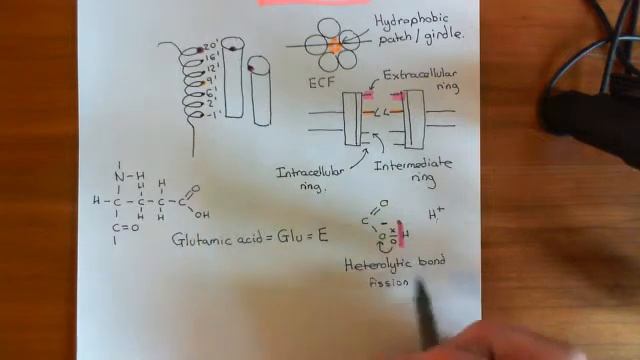 Hydrophobic
patch / girdle.
ECF
Extracellular
ring
20'
16'
12'
9'
6'
2'
-1'
L L
Intracellular
ring.
Intermediate
ring
N-H
H H H O
H-C-C-C-C
H H OH
C=O
Glutamic acid = Glu = E
O
C
O H
H+
Heterolytic bond
fission